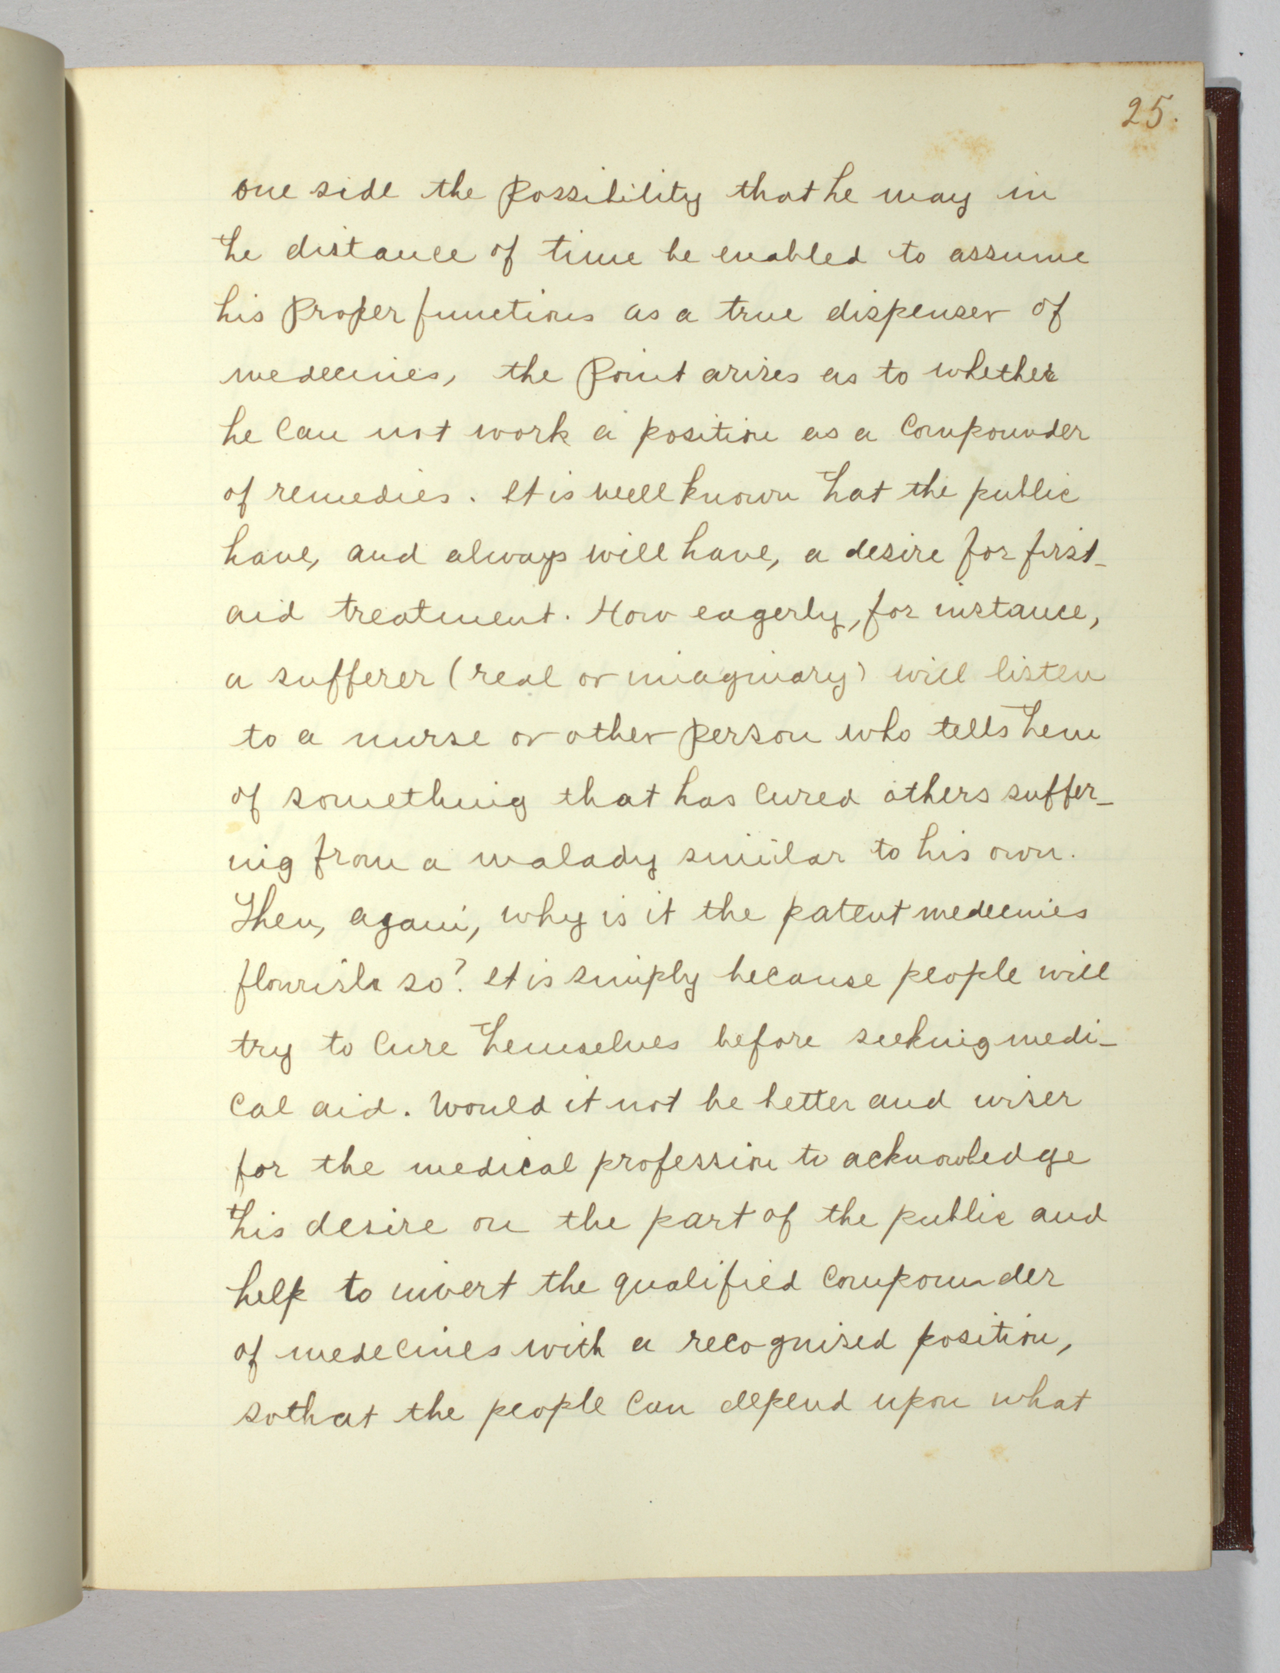 25.
one side the possibility that he may in
the distance of time be enabled to assume
his proper functions as a true dispenser of
medecines, the point arises as to whether
he can not work a position as a compounder
of remedies. It is well known that the public
have, and always will have, a desire for first-
aid treatment. How eagerly, for instance,
a sufferer (real or imaginary) will listen
to a nurse or other person who tells them
of something that has cured others suffer-
ing from a malady similar to his own.
Then, again, why is it the patent medecines
flourish so? It is simply because people will
try to cure themselves before seeking medi-
cal aid. Would it not be better and wiser
for the medical profession to acknowledge
this desire on the part of the public and
help to invert the qualified compounder
of medecines with a recognised position,
so that the people can depend upon what